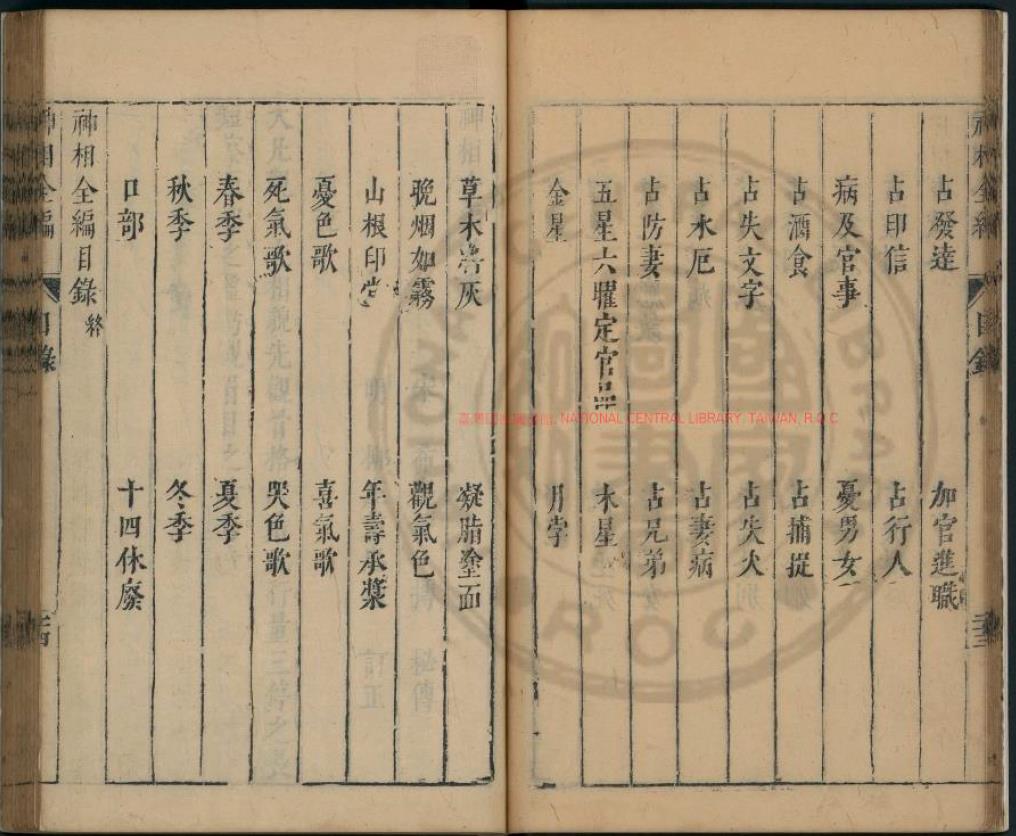 占發達　加官進職
占印信　占行人
病及官事　憂男女
占酒食　占捕捉
占失文字　占失犬
占水厄　占妻病
占防妻　占兄弟
五星六曜定官品　木星
金星　月孛
草木若灰　凝脂塗面
晚烟如霧　觀氣色
山根印堂　年壽承漿
憂色歌　喜氣歌
死氣歌　哭色歌
春季　夏季
秋季　冬季
口部　十四休廢
神相全編目錄終
神相全編　目錄
NATIONAL CENTRAL LIBRARY, TAIWAN, R.O.C